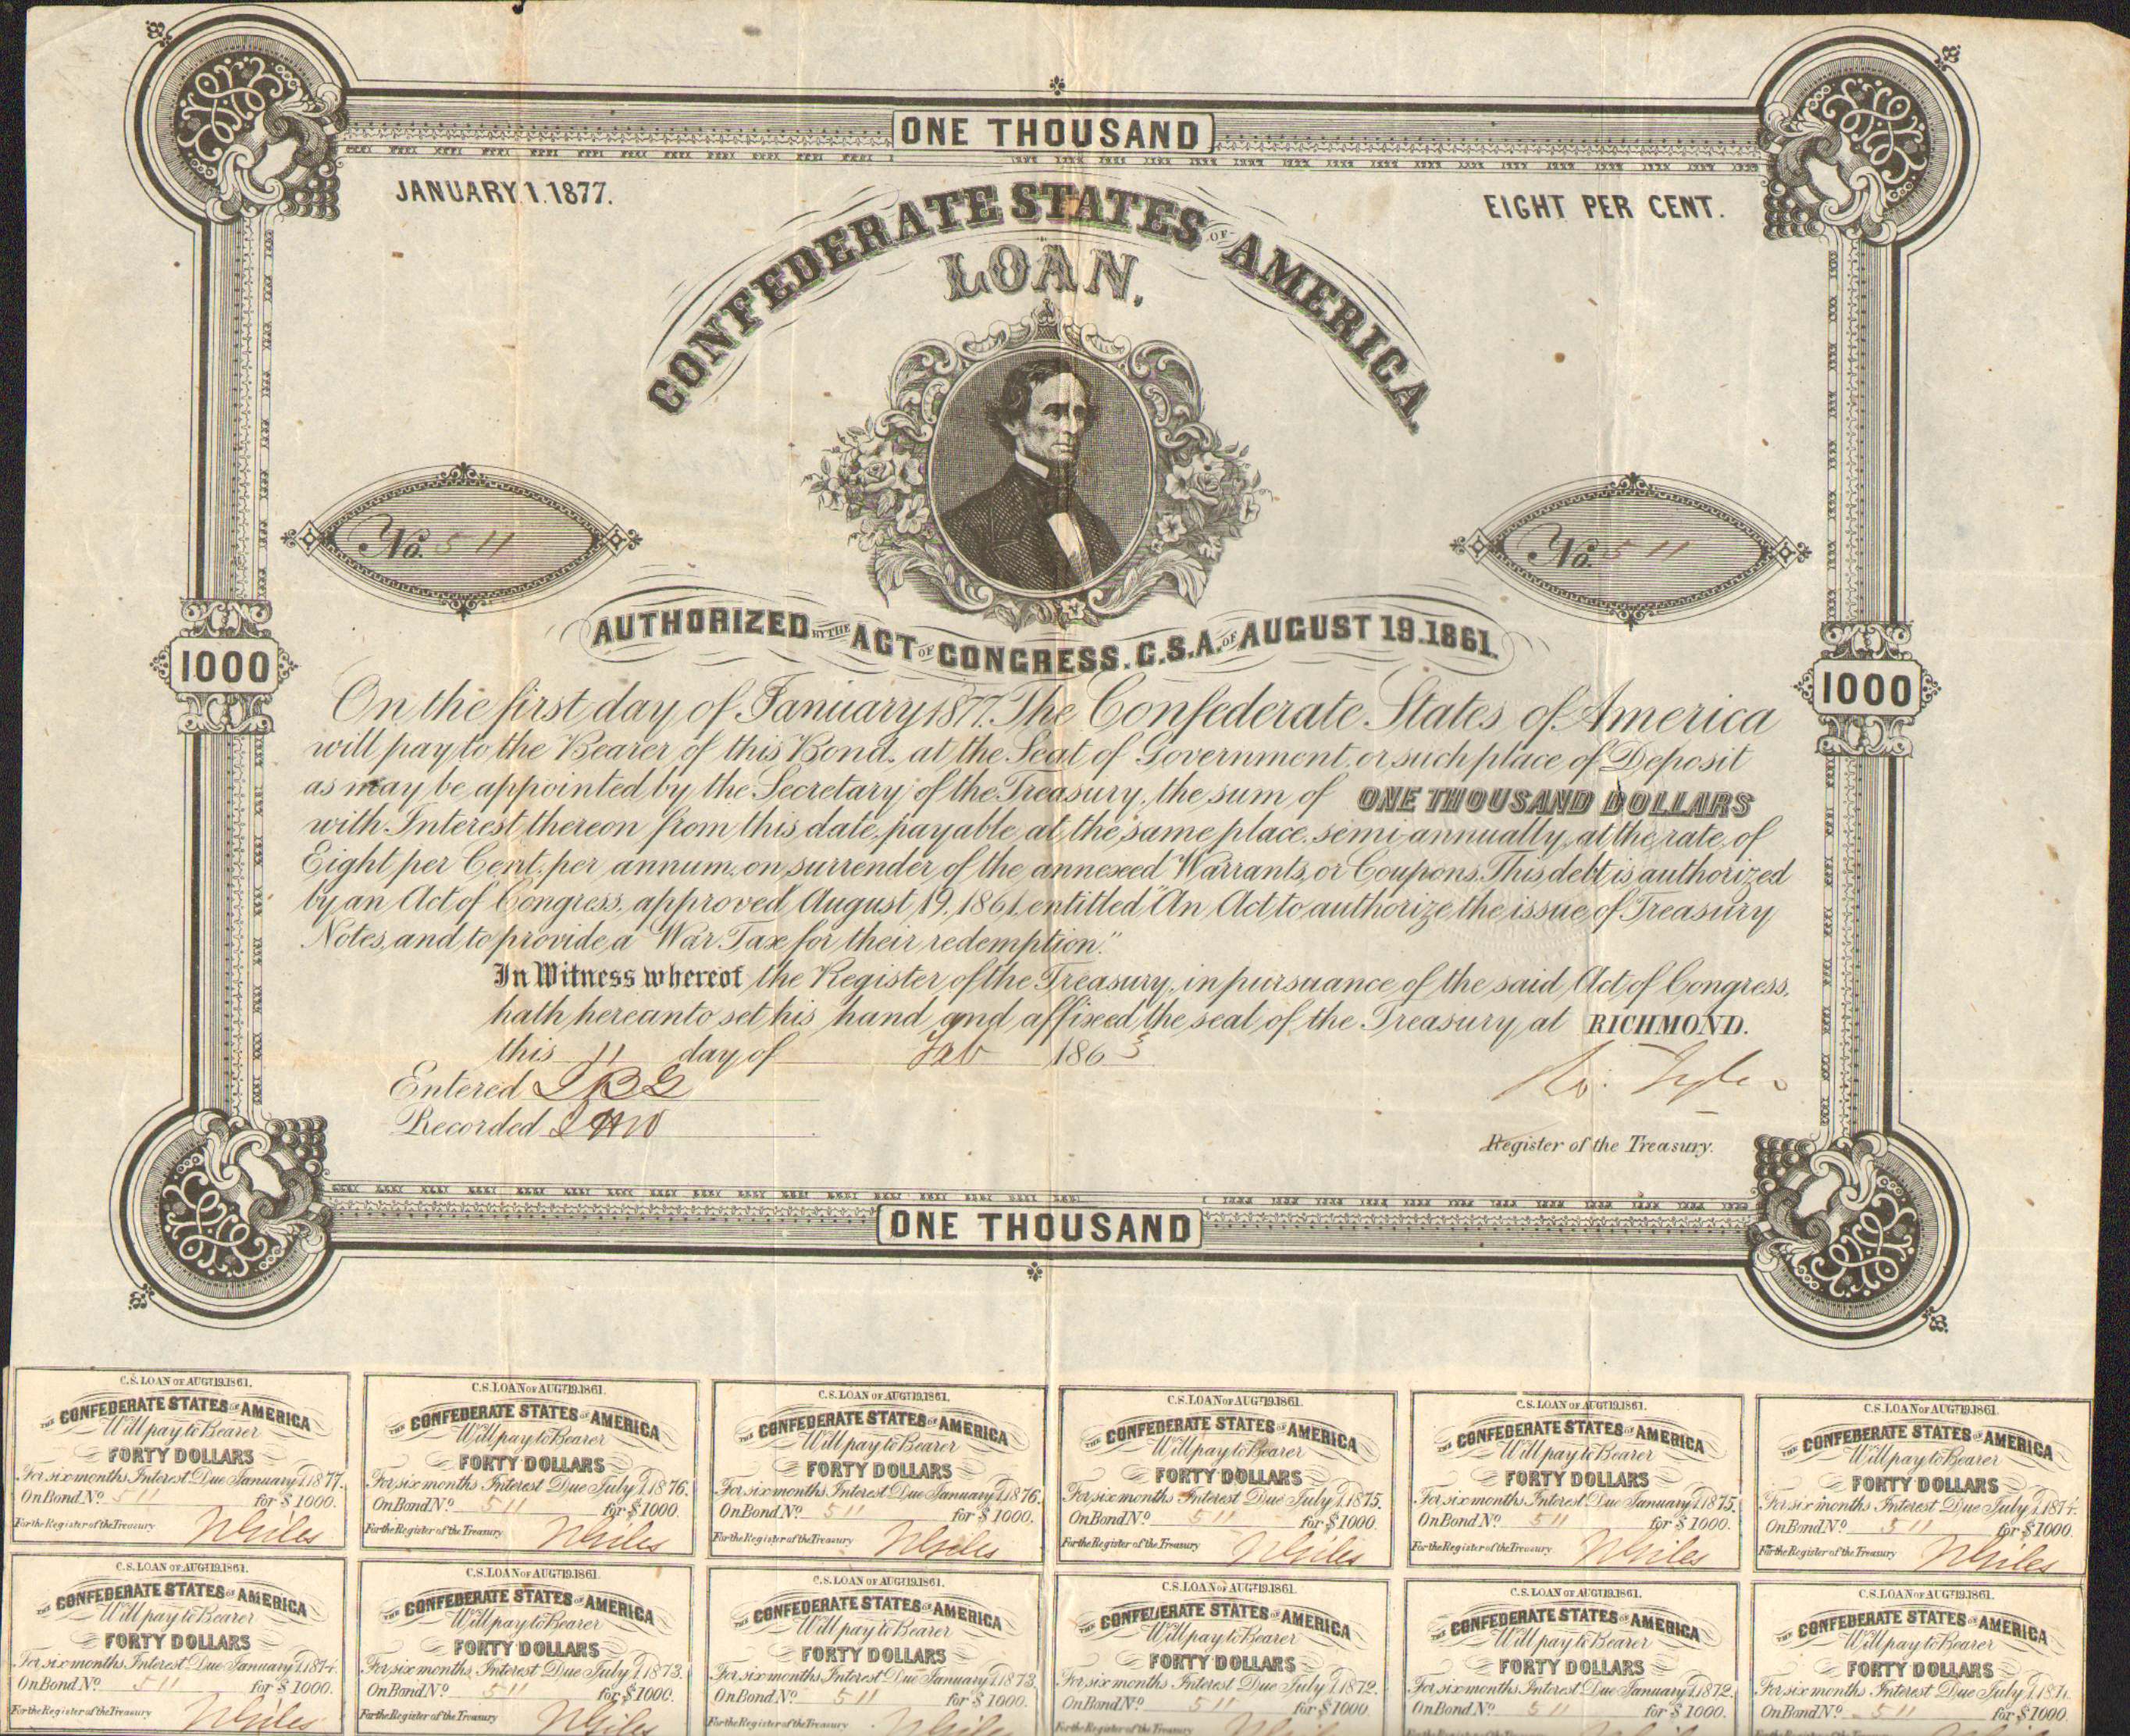 ONE THOUSAND
JANUARY 1. 1877.
EIGHT PER CENT.
CONFEDERATE STATES OF AMERICA.
LOAN.
No. 511
No. 511
AUTHORIZED BY THE ACT OF CONGRESS. C.S.A. OF AUGUST 19. 1861.
1000
1000
On the first day of January 1877. The Confederate States of America
will pay to the Bearer of this Bond, at the Seat of Government, or such place of Deposit
as may be appointed by the Secretary of the Treasury, the sum of ONE THOUSAND DOLLARS
with Interest thereon from this date, payable at the same place, semi-annually, at the rate of
Eight per Cent. per annum, on surrender of the annexed Warrants, or Coupons. This debt is authorized
by an Act of Congress, approved August 19. 1861. entitled "An Act to authorize the issue of Treasury
Notes, and to provide a War Tax for their redemption."
In Witness whereof the Register of the Treasury, in pursuance of the said Act of Congress,
hath hereunto set his hand and affixed the seal of the Treasury, at RICHMOND.
this 11 day of Feb 1863
Entered
Recorded
Ro. Tyler
Register of the Treasury.
ONE THOUSAND
C.S. LOAN OF AUGT 19.1861.
THE CONFEDERATE STATES OF AMERICA
Will pay to Bearer
FORTY DOLLARS
For six months Interest Due January 1.1877.
On Bond No. 511 for $1000.
For the Register of the Treasury
C.S. LOAN OF AUGT 19.1861.
THE CONFEDERATE STATES OF AMERICA
Will pay to Bearer
FORTY DOLLARS
For six months Interest Due July 1.1876.
On Bond No. 511 for $1000.
For the Register of the Treasury
C.S. LOAN OF AUGT 19.1861.
THE CONFEDERATE STATES OF AMERICA
Will pay to Bearer
FORTY DOLLARS
For six months Interest Due January 1.1876.
On Bond No. 511 for $1000.
For the Register of the Treasury
C.S. LOAN OF AUGT 19.1861.
THE CONFEDERATE STATES OF AMERICA
Will pay to Bearer
FORTY DOLLARS
For six months Interest Due July 1.1875.
On Bond No. 511 for $1000.
For the Register of the Treasury
C.S. LOAN OF AUGT 19.1861.
THE CONFEDERATE STATES OF AMERICA
Will pay to Bearer
FORTY DOLLARS
For six months Interest Due January 1.1875.
On Bond No. 511 for $1000.
For the Register of the Treasury
C.S. LOAN OF AUGT 19.1861.
THE CONFEDERATE STATES OF AMERICA
Will pay to Bearer
FORTY DOLLARS
For six months Interest Due July 1.1874.
On Bond No. 511 for $1000.
For the Register of the Treasury
C.S. LOAN OF AUGT 19.1861.
THE CONFEDERATE STATES OF AMERICA
Will pay to Bearer
FORTY DOLLARS
For six months Interest Due January 1.1874.
On Bond No. 511 for $1000.
For the Register of the Treasury
C.S. LOAN OF AUGT 19.1861.
THE CONFEDERATE STATES OF AMERICA
Will pay to Bearer
FORTY DOLLARS
For six months Interest Due July 1.1873.
On Bond No. 511 for $1000.
For the Register of the Treasury
C.S. LOAN OF AUGT 19.1861.
THE CONFEDERATE STATES OF AMERICA
Will pay to Bearer
FORTY DOLLARS
For six months Interest Due January 1.1873.
On Bond No. 511 for $1000.
For the Register of the Treasury
C.S. LOAN OF AUGT 19.1861.
THE CONFEDERATE STATES OF AMERICA
Will pay to Bearer
FORTY DOLLARS
For six months Interest Due July 1.1872.
On Bond No. 511 for $1000.
For the Register of the Treasury
C.S. LOAN OF AUGT 19.1861.
THE CONFEDERATE STATES OF AMERICA
Will pay to Bearer
FORTY DOLLARS
For six months Interest Due January 1.1872.
On Bond No. 511 for $1000.
C.S. LOAN OF AUGT 19.1861.
THE CONFEDERATE STATES OF AMERICA
Will pay to Bearer
FORTY DOLLARS
For six months Interest Due July 1.1871.
On Bond No. 511 for $1000.